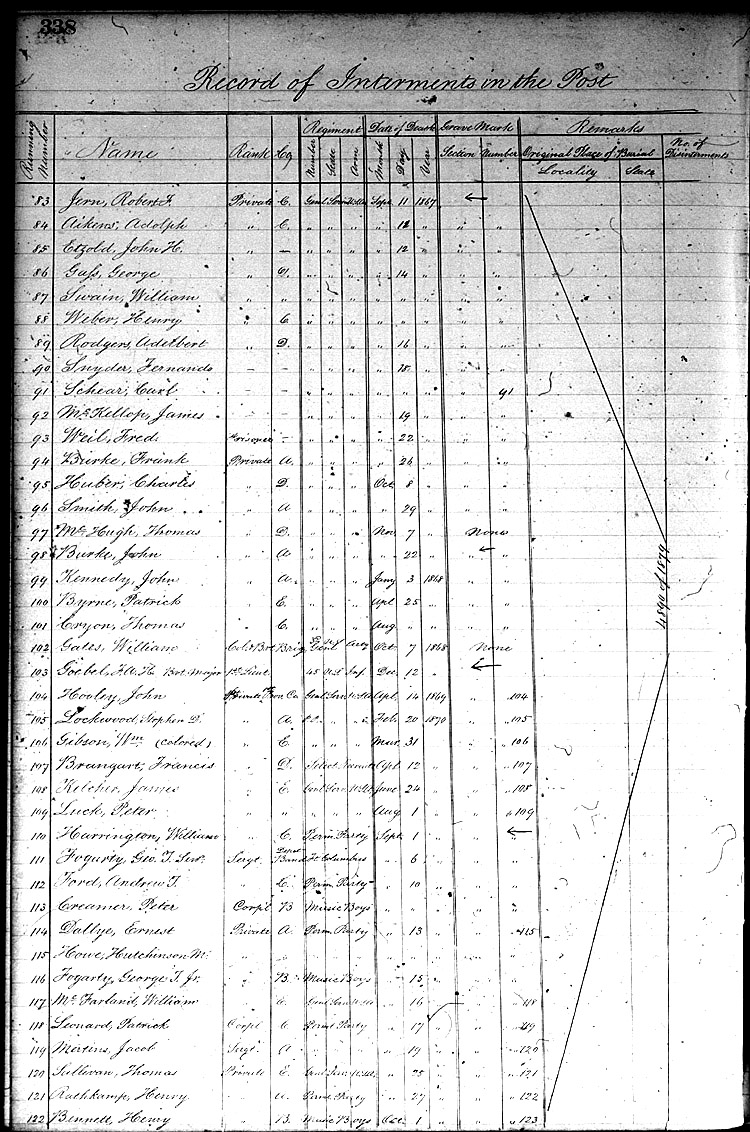 338
Record of Interments in the Post
Running Number Name Rank Co Regiment Date of Death Grave Mark Remarks
Number State Arm Month Day Year Section Number Original Place of Burial No. of Disinterments
Locality State
83 Jern, Robert F. Private C. Genl Serv. Sept 11 1867
84 Aikens, Adolph " C. " " " " 12 " " "
85 Etzold, John H. " — " " " " 12 " " "
86 Gass, George " D. " " " " 14 " " "
87 Swain, William " " " " " " " " " "
88 Weber, Henry " C. " " " " " " " "
89 Rodgers, Adelbert " D. " " " " 16 " " "
90 Snyder, Fernando — — " " " " 18 " " "
91 Schear, Carl — — " " " " " " " 91
92 McKellop, James — — " " " " 19 " " "
93 Weil, Fred Prisoner — " " " " 22 " " "
94 Burke, Frank Private A. " " " " 26 " " "
95 Huber, Charles " D. " " " Oct 8 " " "
96 Smith, John " A " " " " 29 " " "
97 McHugh, Thomas " D. " " " Nov. 7 " None
98 Burke, John " A " " " " 22 " "
99 Kennedy, John " A. " " " Jany 3 1868 " "
100 Byrne, Patrick " E. " " " Apl 25 " " "
101 Cryon, Thomas " C. " " " Aug " " "
102 Gates, William Col. & Bvt Brig Genl Arty Oct. 7 1868 None
103 Goebel, Bvt. Major 1st Lieut. 45 U.S. Inf. Dec. 12 "
104 Hooley, John Private Co. Genl Serv. Apl. 14 1869 " 104
105 Lockwood, Stephen D. " A. " Feb. 20 1870 " 105
106 Gibson, Wm (colored) " C. " " " Mar. 31 " " 106
107 Braugart, Francis " D. Select Recruits Apl 12 " " 107
108 Kelcher, James " E. Genl Serv. June 24 " " 108
109 Luck, Peter " " " " " Aug 1 " " 109
110 Harrington, William " C. Perm. Party Sept. 1 " "
111 Fogarty, Geo. T. Sen. Sergt. Depot Band Ft Columbus " 6 " " "
112 Ford, Andrew T. " C. Perm. Party " 10 " " "
113 Creamer, Peter Corpl B Music Boys " " " " "
114 Dallye, Ernest Private A Perm. Party " 13 " " 115
115 Howe, Hutchinson M. " " " " " " " " "
116 Fogarty, George T. Jr. " B. Music Boys " 15 " " "
117 McFarland, William " C. Genl Serv. " 16 " 118
118 Leonard, Patrick Corpl C Permt Party " 17 " " 119
119 Mertins, Jacob Sergt A " " " 19 " " 120
120 Sullivan, Thomas Private E. Genl Serv. " 25 " " 121
121 Rathkamp, Henry " A. Perm. Party " 27 " " 122
122 Bennett, Henry " B. Music Boys Oct. 1 " " 123
4890 of 1879